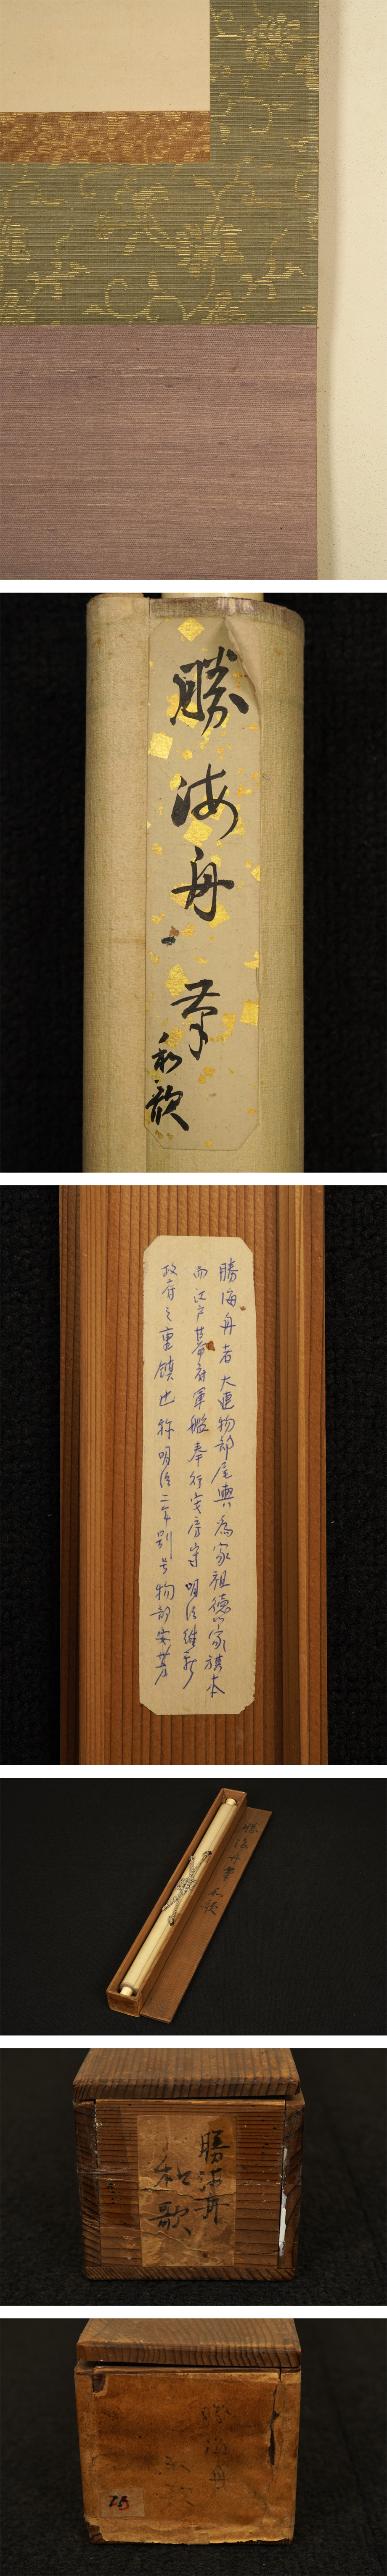 勝海舟筆
和歌
勝海舟者大連物部尾輿為家祖徳川家旗本
而江戸幕府軍艦奉行安房守明治維新
政府之重鎮也称明治二年別号物部安芳
勝海舟筆 和歌
勝海舟
和歌
勝海舟